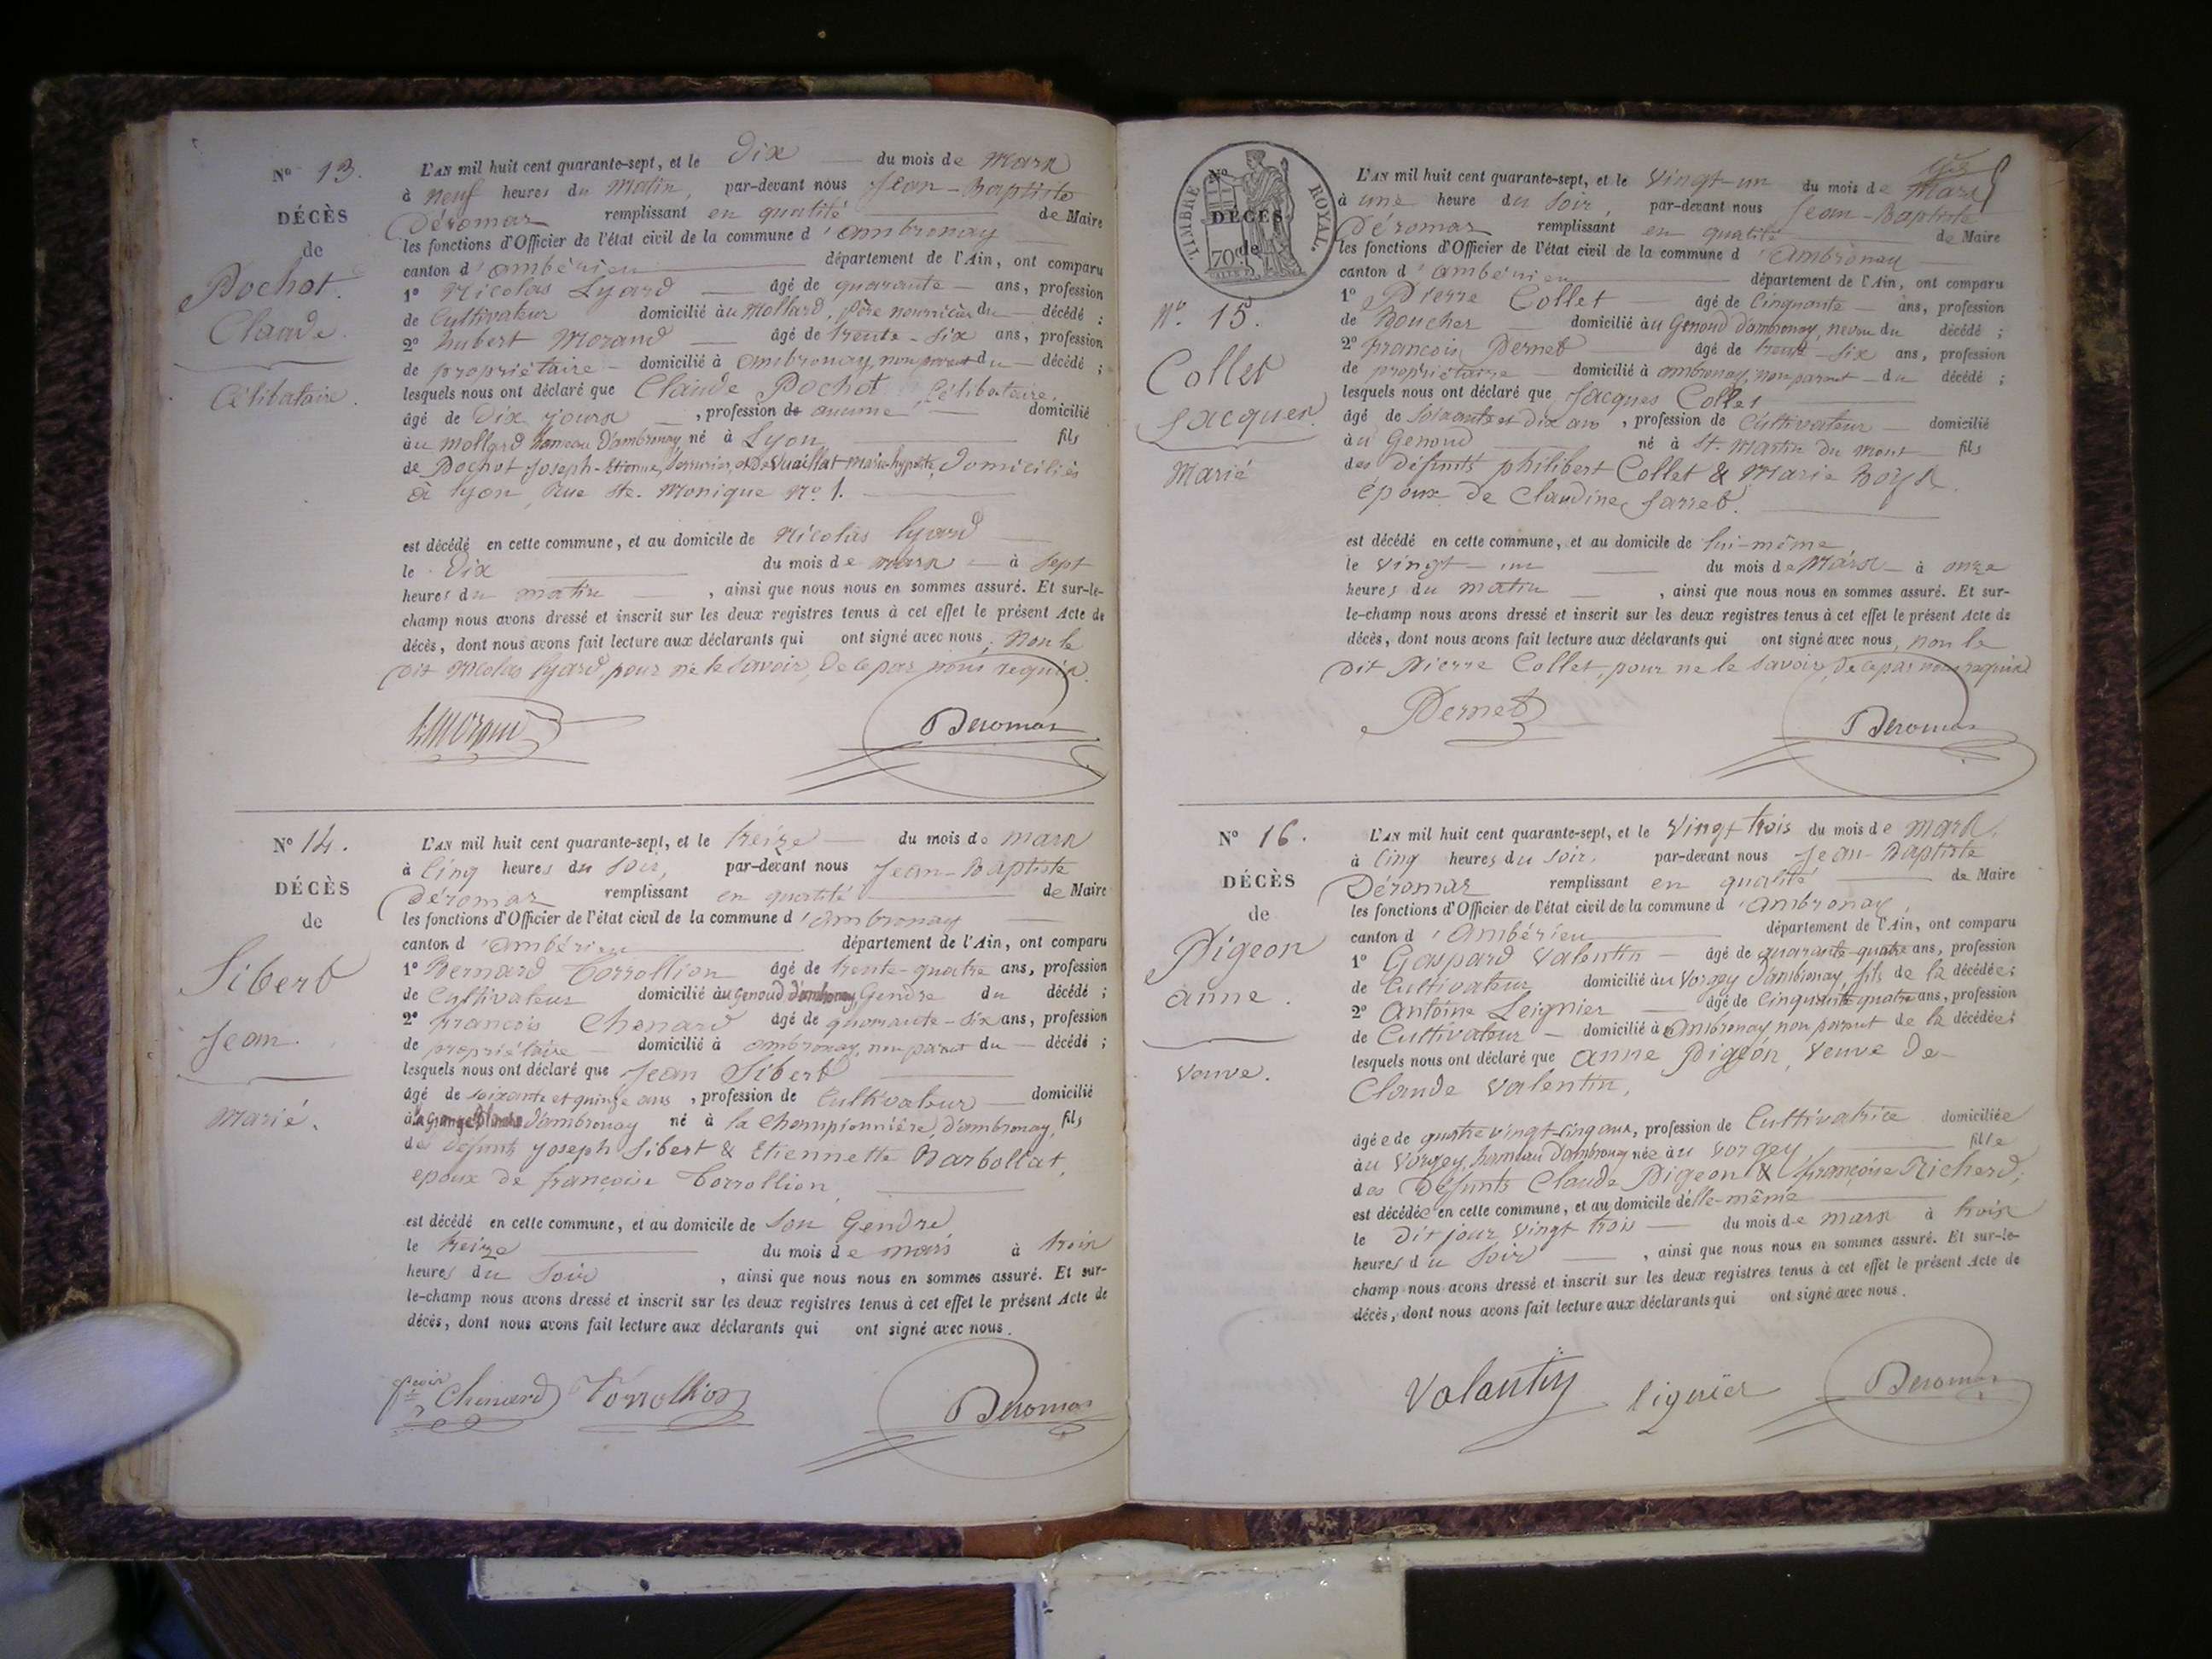 N° 13.
DÉCÈS
de
Pochot
Claude.
Célibataire.
L'AN mil huit cent quarante-sept, et le Dix du mois de mars
à neuf heures du matin, par-devant nous Jean-Baptiste
Déromas remplissant en qualité de Maire
les fonctions d'Officier de l'état civil de la commune d'ambronay
canton d'ambérieu département de l'Ain, ont comparu
1° Nicolas Lyard âgé de quarante ans, profession
de Cultivateur domicilié au Mollard, père nourricier du décédé ;
2° hubert Morand âgé de trente-six ans, profession
de propriétaire domicilié à ambronay, non parent du décédé ;
lesquels nous ont déclaré que Claude Pochot Célibataire,
âgé de Dix jours, profession de aucune domicilié
au mollard hameau d'ambronay né à Lyon fils
de Pochot Joseph-Etienne, serrurier, et de Vuaillat marie hypolite, Domiciliés
à lyon, Rue Ste. Monique N° 1.
est décédé en cette commune, et au domicile de Nicolas lyard
le Dix du mois de mars à sept
heures du matin, ainsi que nous nous en sommes assuré. Et sur-le-
champ nous avons dressé et inscrit sur les deux registres tenus à cet effet le présent Acte de
décès, dont nous avons fait lecture aux déclarants qui ont signé avec nous, Non le
dit Nicolas lyard, pour ne le savoir, de ce par nous requis.
hMorand Deromas
N° 14.
DÉCÈS
de
Sibert
Jean.
marié.
L'AN mil huit cent quarante-sept, et le treize du mois de mars
à Cinq heures du soir, par-devant nous Jean-Baptiste
Déromas remplissant en qualité de Maire
les fonctions d'Officier de l'état civil de la commune d'ambronay
canton d'ambérieu département de l'Ain, ont comparu
1° Bernard Torrollion âgé de trente-quatre ans, profession
de Cultivateur domicilié au genoud d'ambronay, Gendre du décédé ;
2° françois Chenard âgé de quarante-six ans, profession
de propriétaire domicilié à ambronay, non parent du décédé ;
lesquels nous ont déclaré que Jean Sibert
âgé de soixante et quinze ans, profession de Cultivateur domicilié
à d'ambronay né à la Championnière, d'ambronay, fils
de défunts Joseph Sibert & Etiennette Barbollat,
époux de françoise Torrollion,
est décédé en cette commune, et au domicile de son Gendre
le treize du mois de mars à trois
heures du soir, ainsi que nous nous en sommes assuré. Et sur-
le-champ nous avons dressé et inscrit sur les deux registres tenus à cet effet le présent Acte de
décès, dont nous avons fait lecture aux déclarants qui ont signé avec nous.
Chenard Torrollion Deromas
TIMBRE ROYAL.
70 c
N°
DÉCÈS
de
N° 15.
Collet
Jacques.
Marié
L'AN mil huit cent quarante-sept, et le Vingt-un du mois de Mars
à une heure du soir, par-devant nous Jean-Baptiste
Déromas remplissant en qualité de Maire
les fonctions d'Officier de l'état civil de la commune d'ambronay
canton d'ambérieu département de l'Ain, ont comparu
1° Pierre Collet âgé de Cinquante ans, profession
de Boucher domicilié au Genoud d'ambronay, neveu du décédé ;
2° françois Pernet âgé de trente-six ans, profession
de propriétaire domicilié à ambronay, non parent du décédé ;
lesquels nous ont déclaré que Jacques Collet
âgé de soixante et dix ans, profession de Cultivateur domicilié
au Genoud né à St. Martin du Mont fils
des défunts philibert Collet & Marie
époux de Claudine Jarret.
est décédé en cette commune, et au domicile de lui-même
le vingt-un du mois de Mars à onze
heures du matin, ainsi que nous nous en sommes assuré. Et sur-
le-champ nous avons dressé et inscrit sur les deux registres tenus à cet effet le présent Acte de
décès, dont nous avons fait lecture aux déclarants qui ont signé avec nous, non le
dit Pierre Collet, pour ne le savoir, de ce par nous requis
Pernet Deromas
N° 16.
DÉCÈS
de
Pigeon
anne.
Veuve.
L'AN mil huit cent quarante-sept, et le Vingt trois du mois de mars,
à Cinq heures du soir, par-devant nous Jean-Baptiste
Déromas remplissant en qualité de Maire
les fonctions d'Officier de l'état civil de la commune d'ambronay,
canton d'Ambérieu département de l'Ain, ont comparu
1° Gaspard Valentin âgé de quarante-quatre ans, profession
de Cultivateur domicilié au Vorgey d'ambronay, fils de la décédée ;
2° Antoine Leignier âgé de Cinquante quatre ans, profession
de Cultivateur domicilié à ambronay non parent de la décédée ;
lesquels nous ont déclaré que anne Pigeon, Veuve de
Claude Valentin,
âgée de quatre vingt-cinq ans, profession de Cultivatrice domiciliée
au Vorgey, hameau d'ambronay née au Vorgey fille
des Défunts Claude Pigeon & françoise Richerd,
est décédée en cette commune, et au domicile d'elle-même
le Dit jour vingt trois du mois de mars à trois
heures du soir, ainsi que nous nous en sommes assuré. Et sur-le-
champ nous avons dressé et inscrit sur les deux registres tenus à cet effet le présent Acte de
décès, dont nous avons fait lecture aux déclarants qui ont signé avec nous.
Valantin liguier Deromas